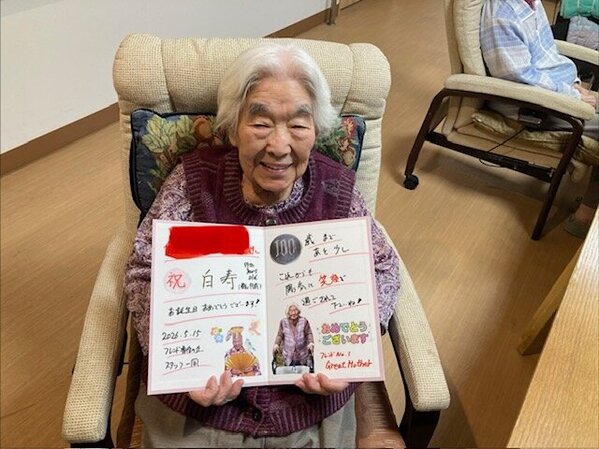 祝 白寿
99th
お誕生日 おめでとうございます!
2026.5.15
スタッフ一同
100 歳まで
あと少し
これからも
陽気に笑顔で
過ごされて
下さいね!
おめでとう
ございます
フレンド No.1
Great Mother